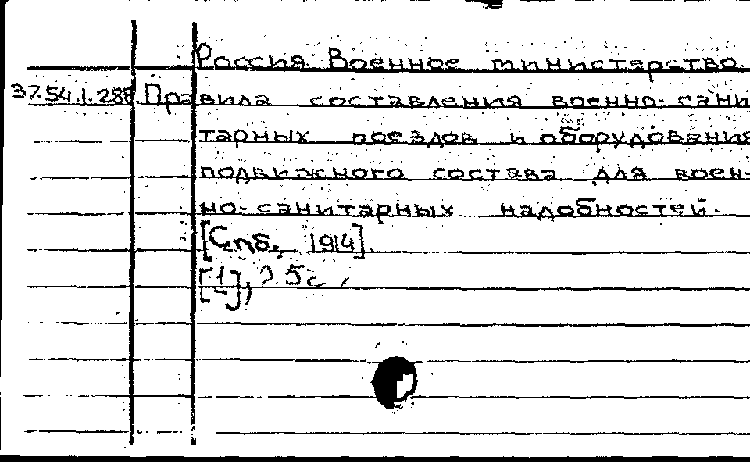 Россия. Военное министерство.
37.54.1.288 Правила составления военно-сани-
тарных поездов и оборудования
подвижного состава для воен-
но-санитарных надобностей.
[Спб., 1914].
[1],